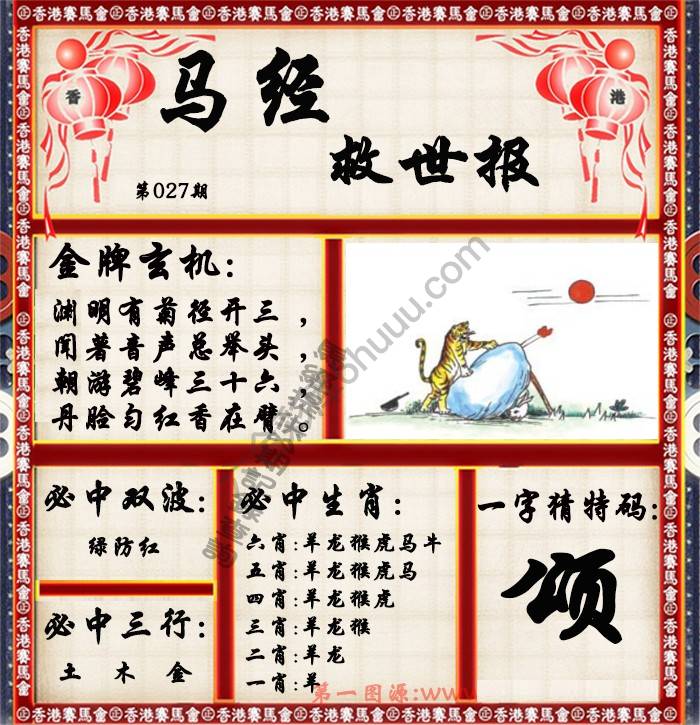 香港賽馬會
香
港
马经
救世报
第027期
金牌玄机:
渊明有菊径开三,
闻著音声总举头,
朝游碧峰三十六,
丹脸匀红香在臂。
必中双波:
绿防红
必中三行:
土 木 金
必中生肖:
六肖:羊龙猴虎马牛
五肖:羊龙猴虎马
四肖:羊龙猴虎
三肖:羊龙猴
二肖:羊龙
一肖:羊
一字猜特码:
颂
第一图源:www